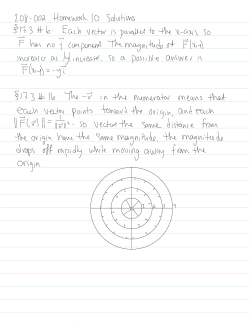 208-002 Homework 10 Solutions
§17.3 #6. Each vector is parallel to the x-axis so
F has no j component. The magnitude of F(x,y)
increases as y increase, so a possible answer is
F(x,y) = -yi
§17.3 #16 The -r in the numerator means that
each vector points toward the origin, and each
so vector the same distance from
the origin have the same magnitude. The magnitude
drops off rapidly while moving away from the
origin